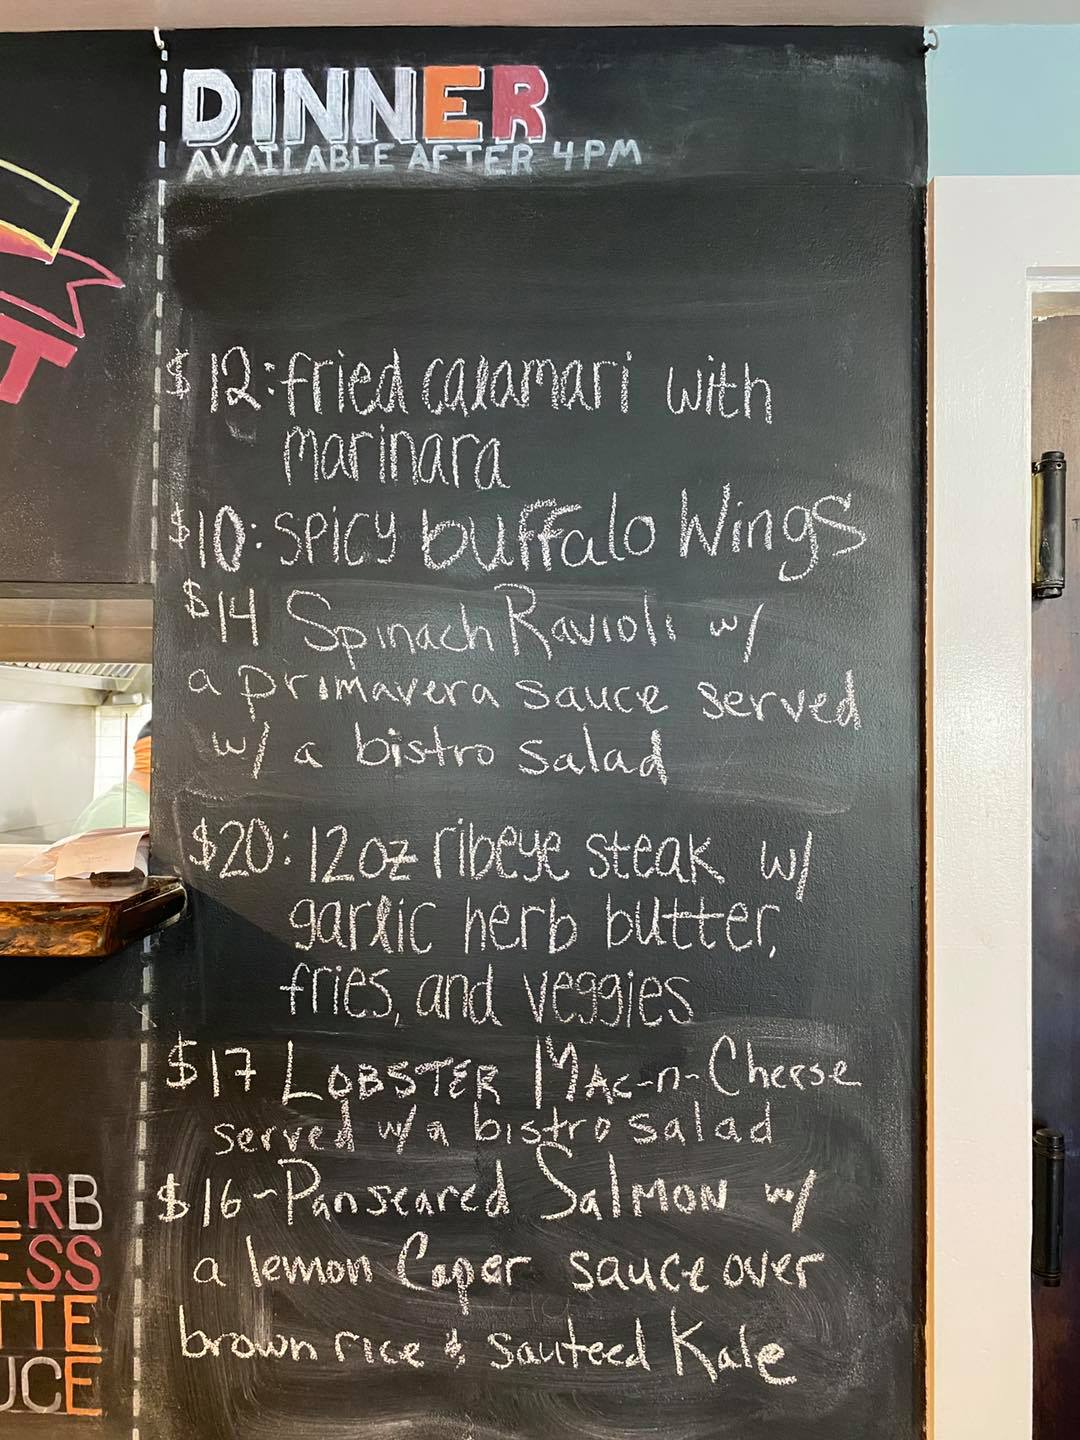 DINNER
AVAILABLE AFTER 4PM
$12: fried calamari with
marinara
$10: SPICY buffalo Wings
$14 Spinach Ravioli w/
a primavera sauce served
w/ a bistro salad
$20: 12oz ribeye steak w/
garlic herb butter,
fries, and veggies
$17 LOBSTER MAC-n-Cheese
served w/a bistro salad
$16-Panseared SalMON w/
a lemon Caper sauce over
brown rice & sauteed Kale
ERB
ESS
TTE
UCE